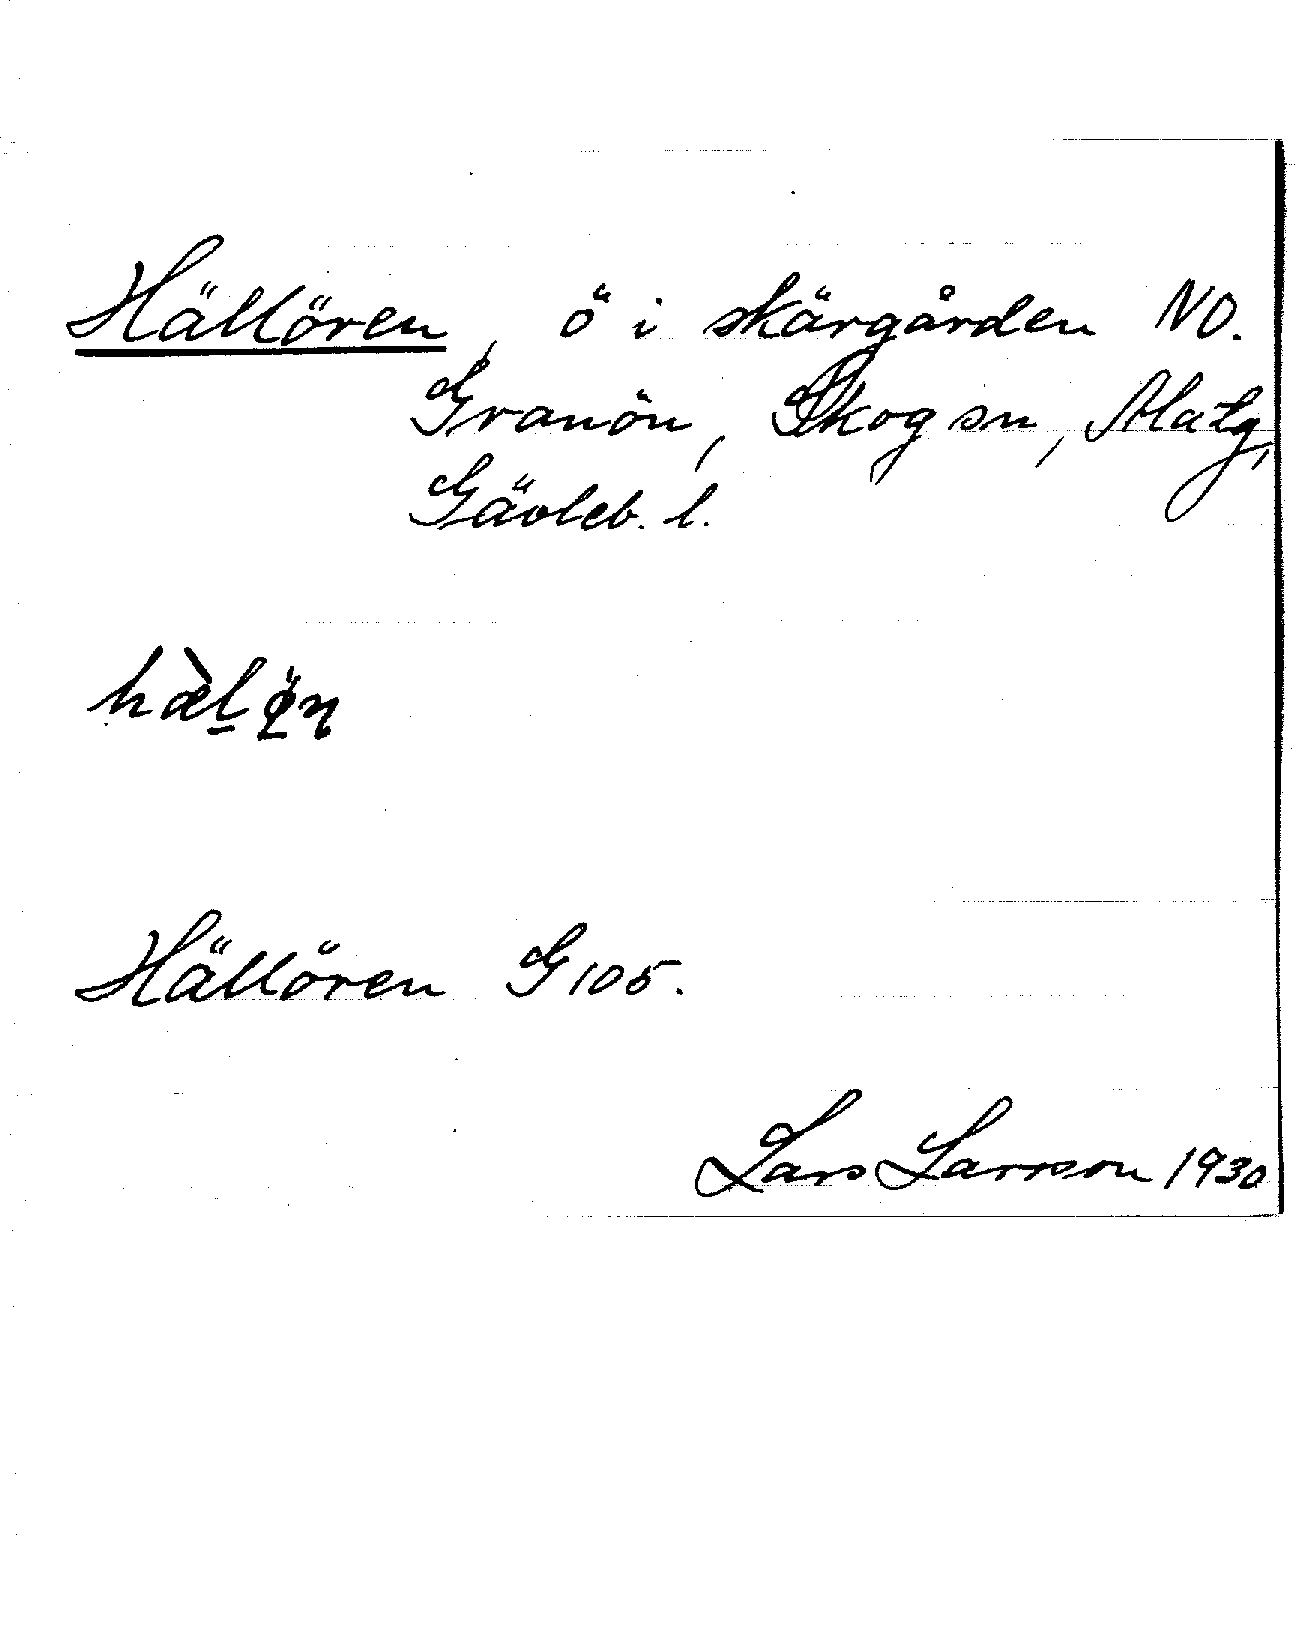 Hällören, ö i skärgården NO.
Granön, Skog sn, Matg,
Gävleb. l.
Hällören G 105.
Lars Larsson 1930